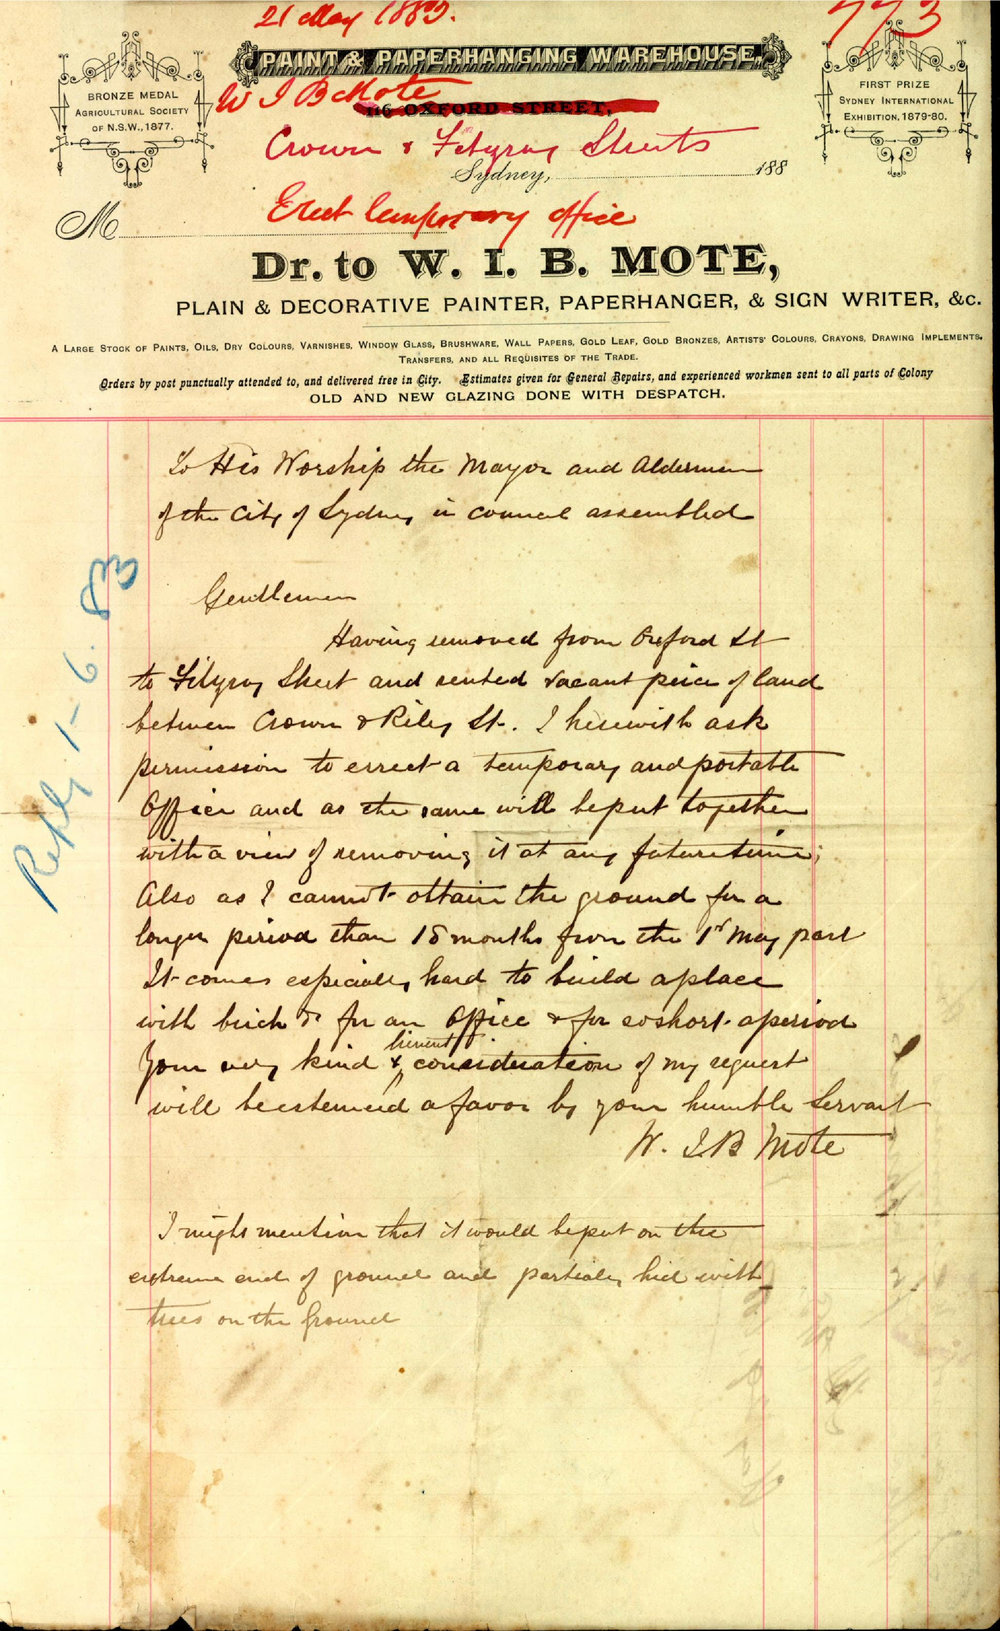 21 May 1883.
773
PAINT & PAPERHANGING WAREHOUSE,
BRONZE MEDAL
AGRICULTURAL SOCIETY
OF N.S.W., 1877.
FIRST PRIZE
SYDNEY INTERNATIONAL
EXHIBITION, 1879-80.
W I B Mote
116 OXFORD STREET,
Crown & Fitzroy Streets
Sydney, 188
M
Erect temporary office
Dr. to W. I. B. MOTE,
PLAIN & DECORATIVE PAINTER, PAPERHANGER, & SIGN WRITER, &c.
A LARGE STOCK OF PAINTS, OILS, DRY COLOURS, VARNISHES, WINDOW GLASS, BRUSHWARE, WALL PAPERS, GOLD LEAF, GOLD BRONZES, ARTISTS' COLOURS, CRAYONS, DRAWING IMPLEMENTS,
TRANSFERS, AND ALL REQUISITES OF THE TRADE.
Orders by post punctually attended to, and delivered free in City. Estimates given for General Repairs, and experienced workmen sent to all parts of Colony
OLD AND NEW GLAZING DONE WITH DESPATCH.
To His Worship the Mayor and Aldermen
of the City of Sydney in council assembled
Gentlemen
Having removed from Oxford St
to Fitzroy Street and rented vacant peice of land
between Crown & Riley St. I herewith ask
permission to errect a temporary and portable
Office and as the same will be put together
with a view of removing it at any future time;
Also as I cannot obtain the ground for a
longer period than 18 months from the 1st May past
It comes especially hard to build a place
with brick &c for an Office & for so short a period
Your very kind & lenient consideration of my request
will be esteemed a favor by your humble Servant
W. I B Mote
I might mention that it would be put on the
extreme end of ground and partialy hid with
trees on the Ground
Reply 1-6.83